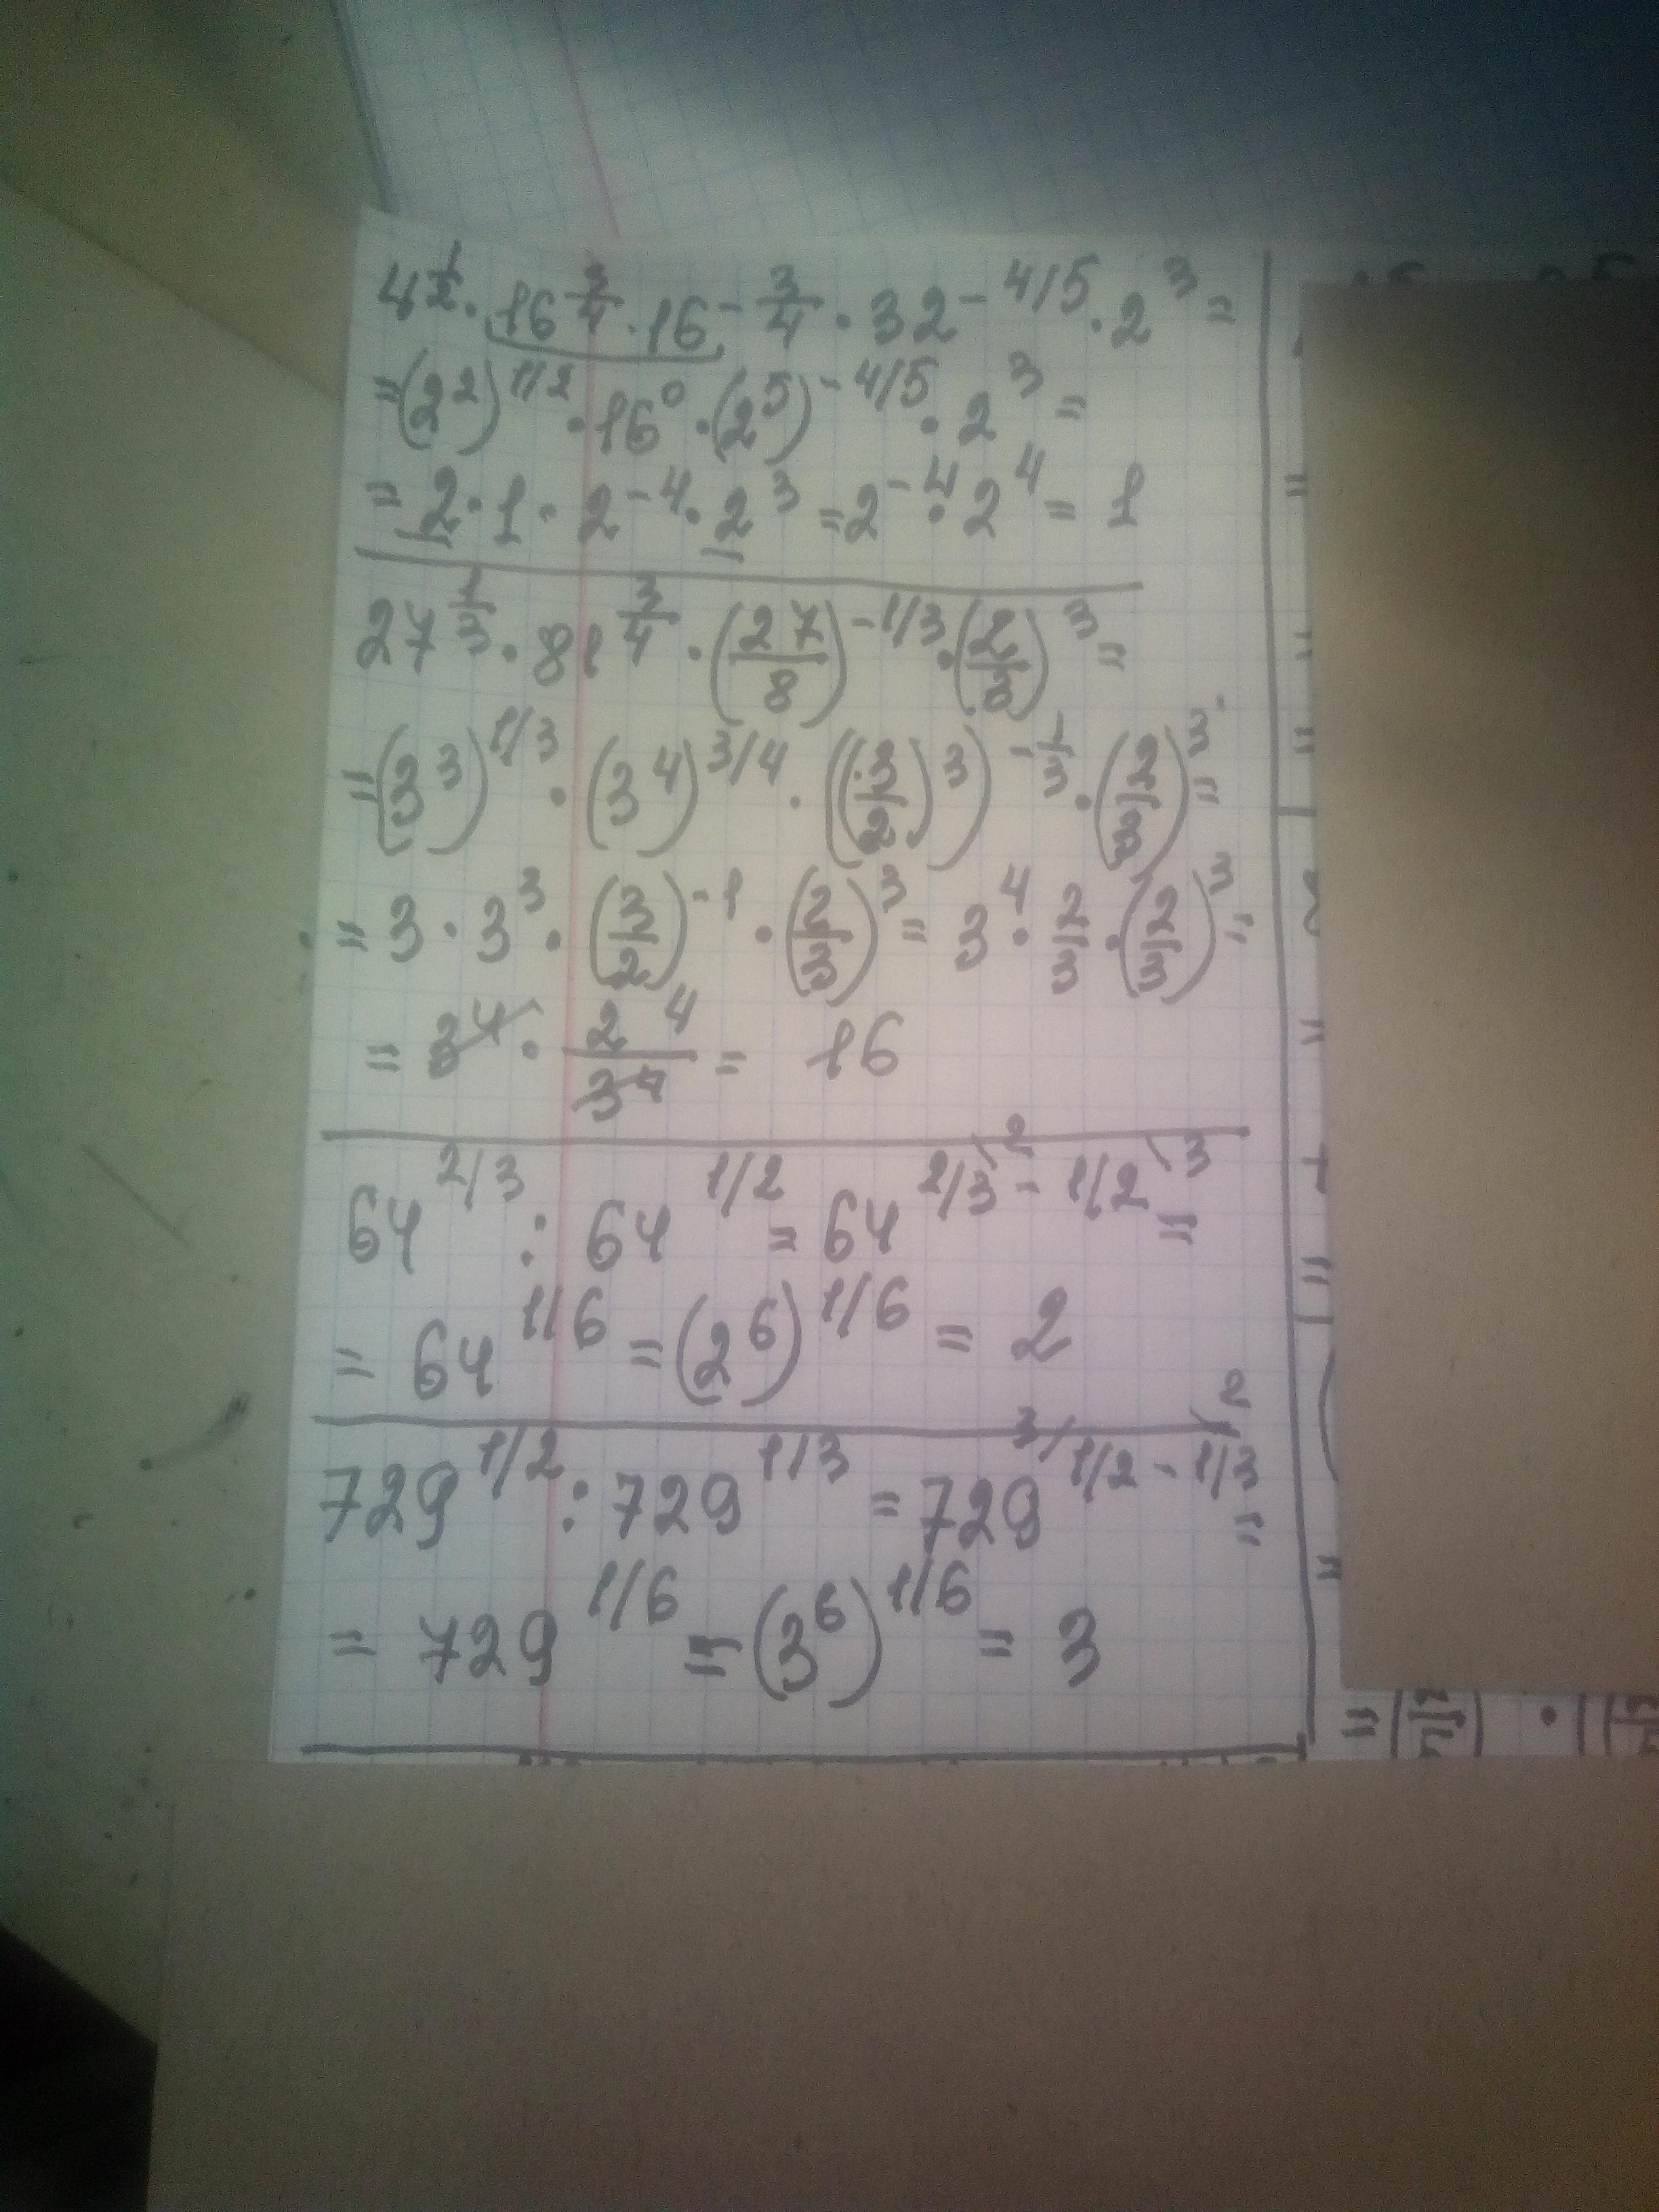 4^(1/2) · 16^(3/4) · 16^(-3/4) · 32^(-4/5) · 2^3 =
= (2^2)^(1/2) · 16^0 · (2^5)^(-4/5) · 2^3 =
= 2 · 1 · 2^(-4) · 2^3 = 2^(-4) · 2^4 = 1
27^(1/3) · 81^(3/4) · (27/8)^(-1/3) · (2/3)^3 =
= (3^3)^(1/3) · (3^4)^(3/4) · ((3/2)^3)^(-1/3) · (2/3)^3 =
= 3 · 3^3 · (3/2)^(-1) · (2/3)^3 = 3^4 · 2/3 · (2/3)^3 =
= 3^4 · 2^4/3^4 = 16
64^(2/3) : 64^(1/2) = 64^(2/3\2 - 1/2\3) =
= 64^(1/6) = (2^6)^(1/6) = 2
729^(1/2) : 729^(1/3) = 729^(3/1/2 - 1/3\2) =
= 729^(1/6) = (3^6)^(1/6) = 3